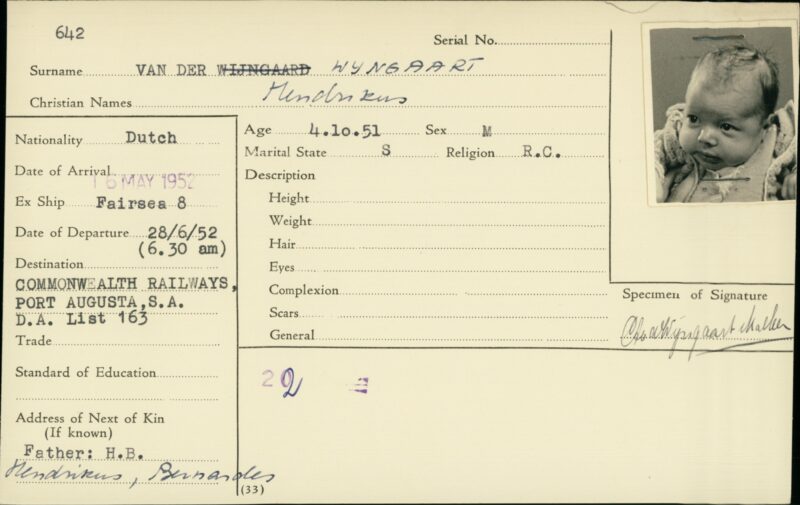 642
Serial No.
Surname VAN DER WIJNGAARD WYNGAART
Christian Names Hendrikus
Nationality Dutch
Date of Arrival 16 MAY 1952
Ex Ship Fairsea 8
Date of Departure 28/6/52
(6.30 am)
Destination
COMMONWEALTH RAILWAYS,
PORT AUGUSTA,S.A.
D.A. List 163
Trade
Standard of Education
Address of Next of Kin
(If known)
Father: H.B.
Hendrikus, Bernardes
Age 4.10.51 Sex M
Marital State S Religion R.C.
Description
Height
Weight
Hair
Eyes
Complexion
Scars
General
202
(33)
Specimen of Signature